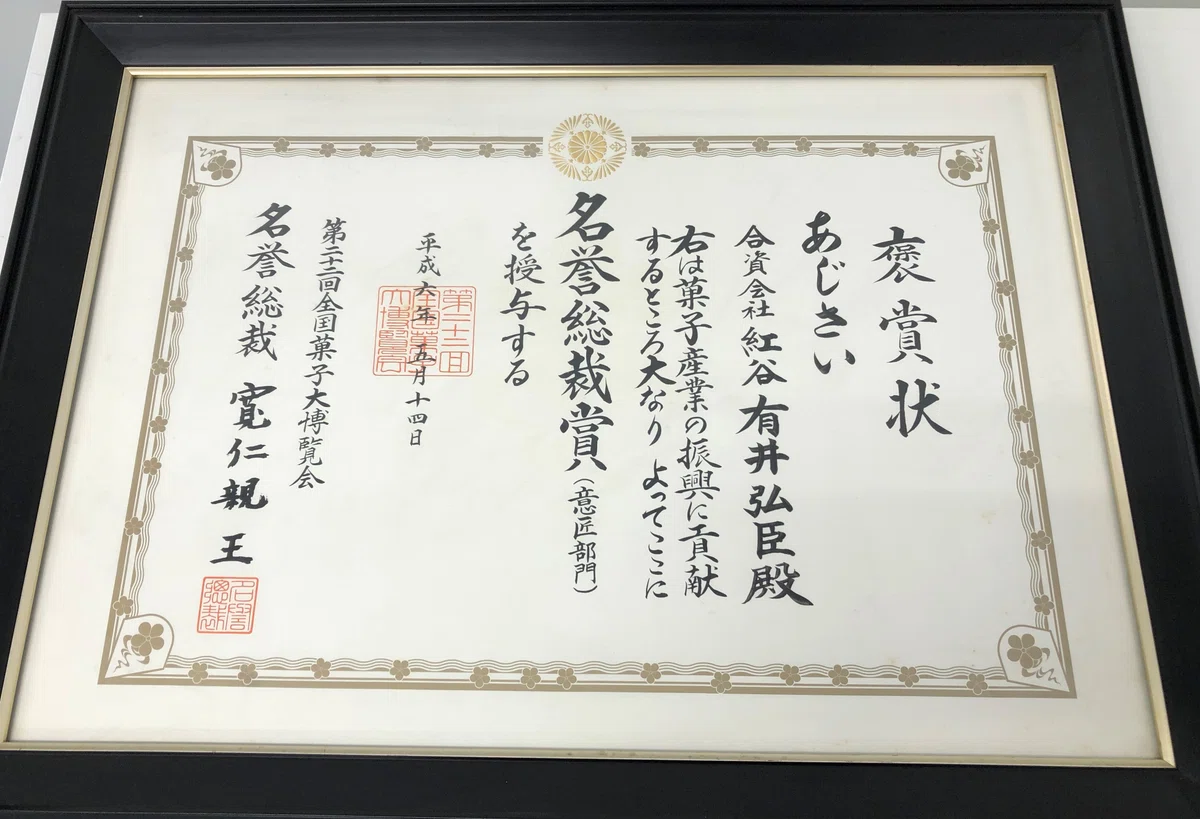 褒賞状
あじさい
合資会社 紅谷 有井弘臣殿
右は菓子産業の振興に貢献
するところ大なり よってここに
名誉総裁賞(意匠部門)
を授与する
平成六年五月十四日
第二十二回全国菓子大博覧会
名誉総裁 寛仁親王
名誉総裁